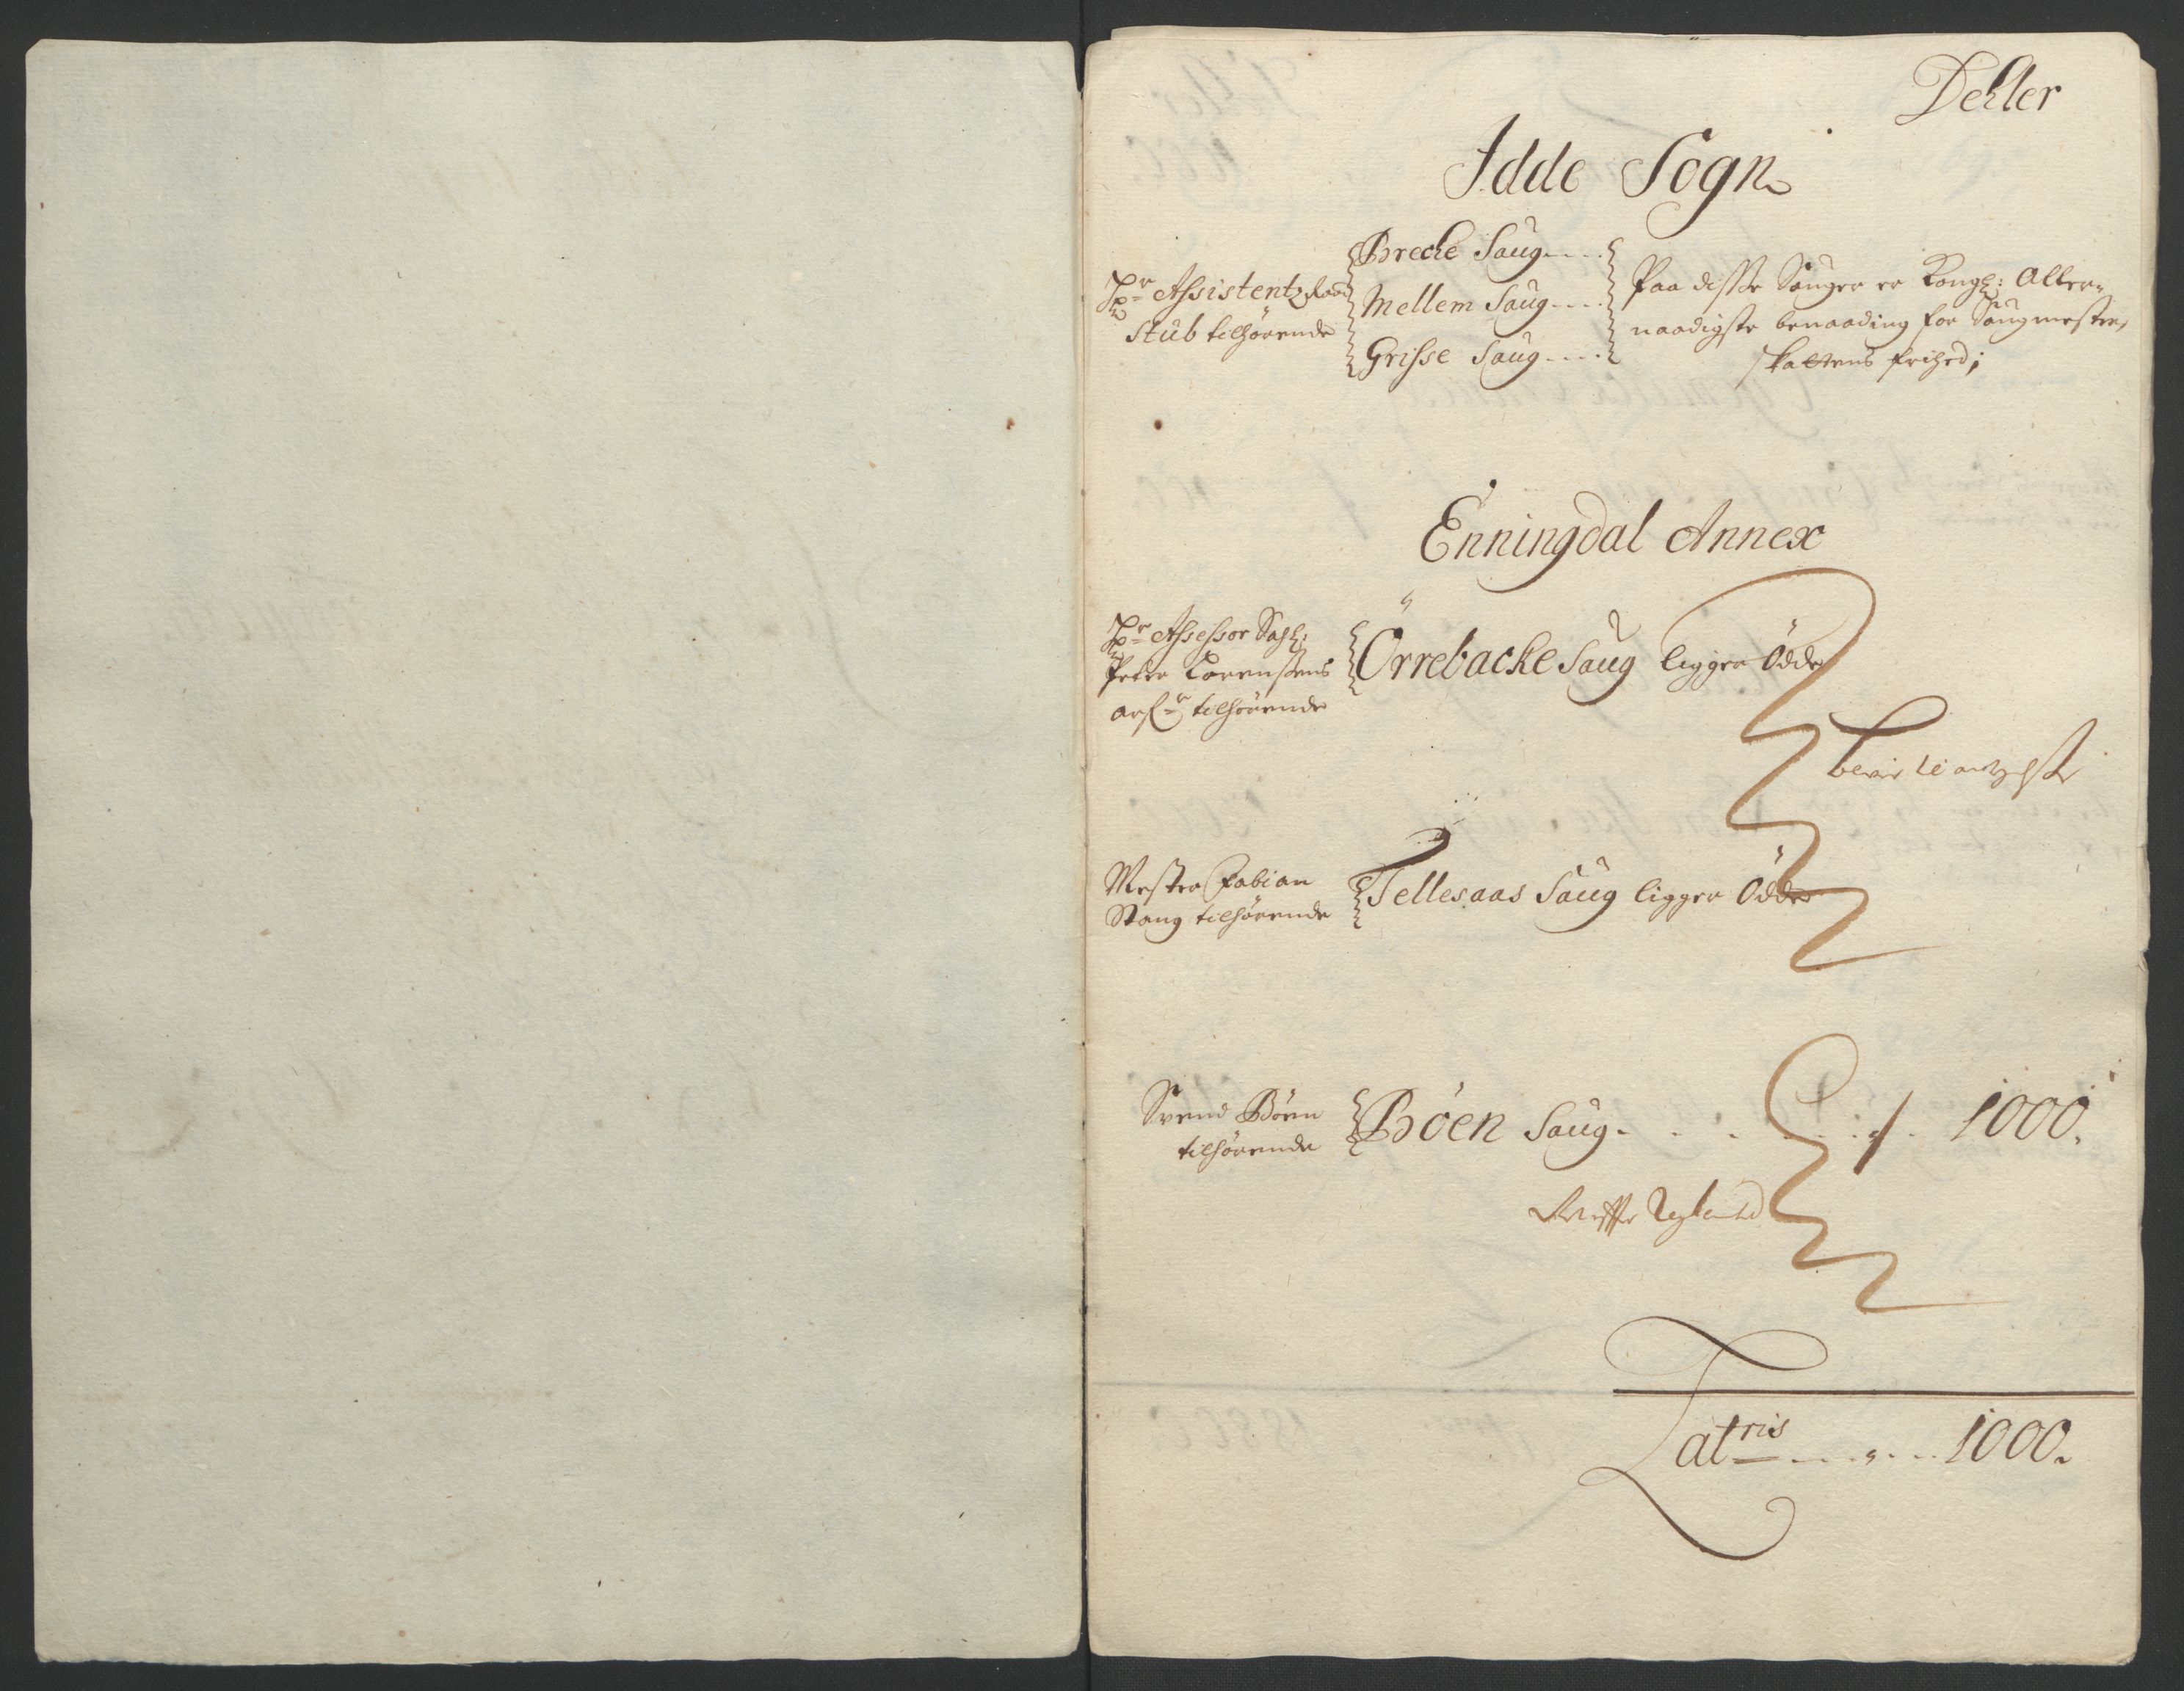 Dehler
Idde Sogn
Hr Assistentz Raad
Stub tilhørende
Brecke Saug
Mellem Saug
Grisse Saug
Paa disse Sauger er Kongl: Aller-
naadigste benaading for Saugmester
skattens frihed;
Enningdal Annex
Hr Assessor Sal:
Peder Lorensens
arf: tilhørende
Örrebacke Saug ligger Öde
Mester Fabian
Stang tilhørende
Tellesaas Saug ligger Öde
Svend Böen
tilhørende
Böen Saug 1000.
Latris 1000.